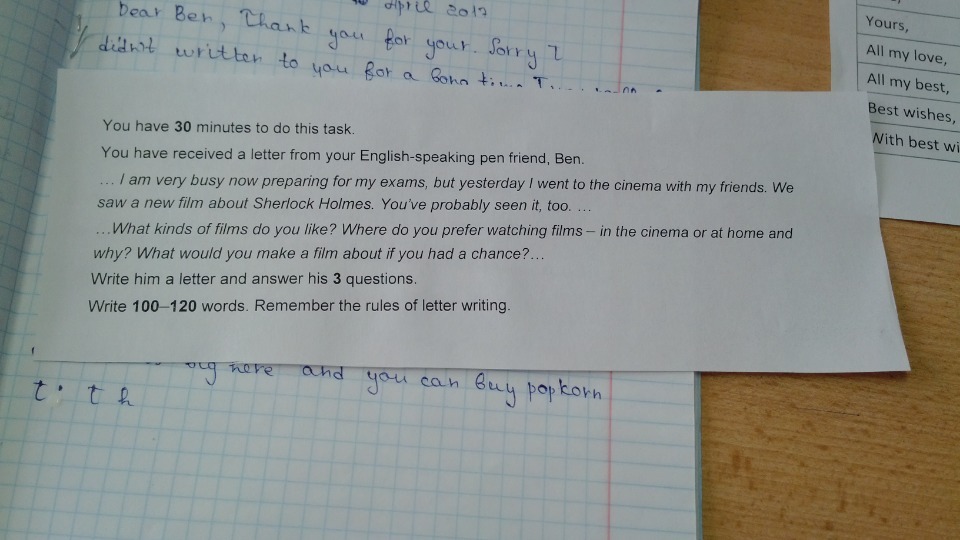 april 2017
Dear Ben, Thank you for your. Sorry I
didn't written to you for a
You have 30 minutes to do this task.
You have received a letter from your English-speaking pen friend, Ben.
… I am very busy now preparing for my exams, but yesterday I went to the cinema with my friends. We
saw a new film about Sherlock Holmes. You've probably seen it, too. …
…What kinds of films do you like? Where do you prefer watching films – in the cinema or at home and
why? What would you make a film about if you had a chance?…
Write him a letter and answer his 3 questions.
Write 100–120 words. Remember the rules of letter writing.
here and you can buy popkorn
t. t h
Yours,
All my love,
All my best,
Best wishes,
With best